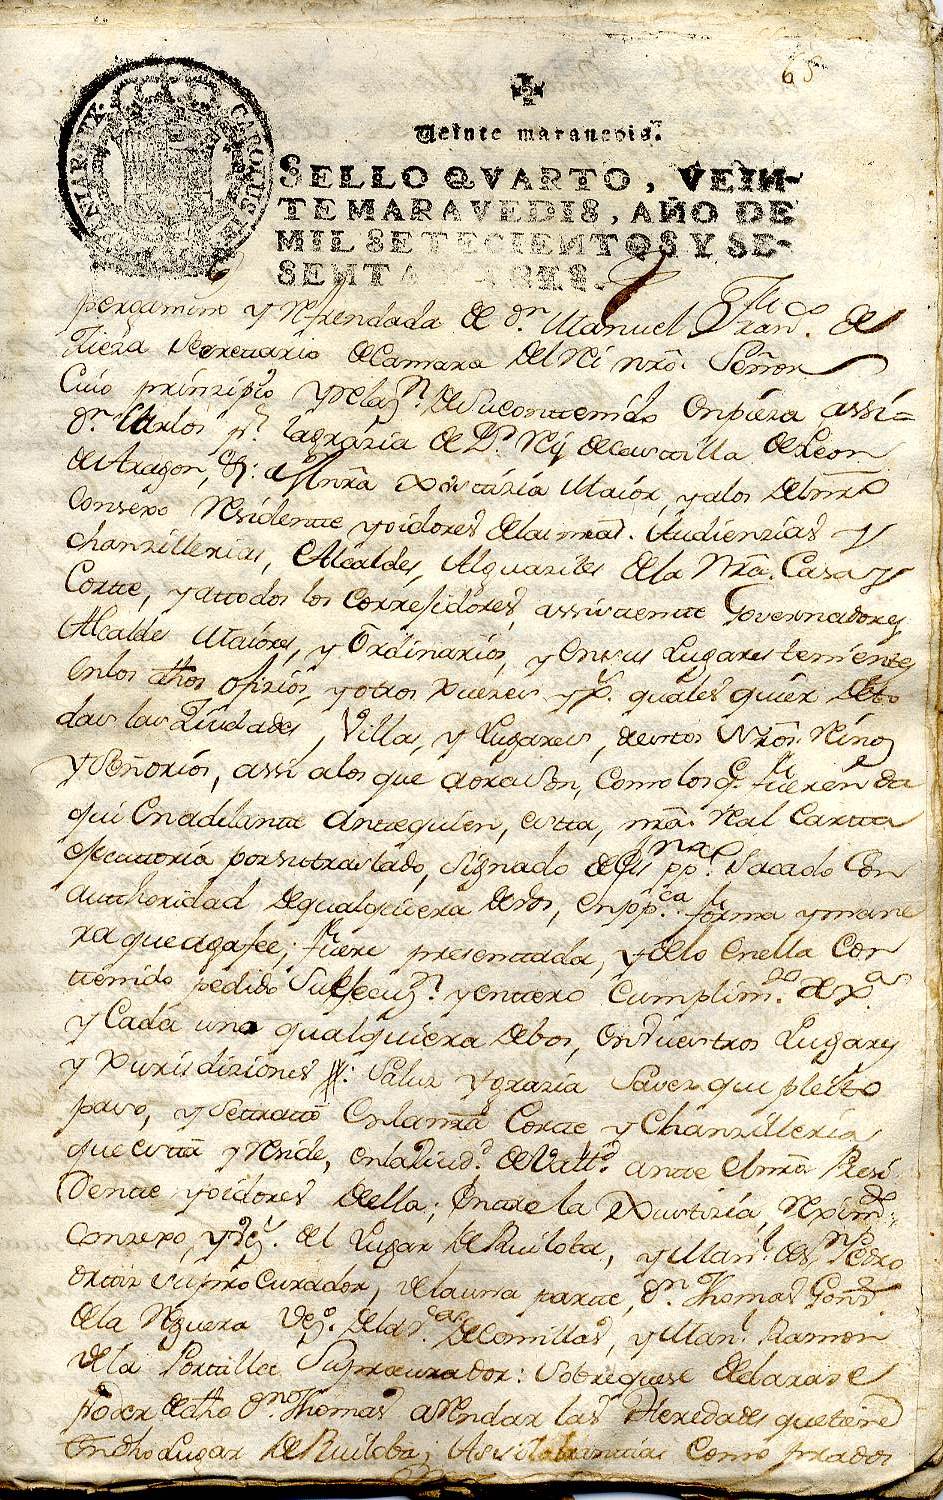 65
Veinte maravedis.
SELLO QVARTO, VEIN-
TE MARAVEDIS, AÑO DE
MIL SETECIENTOS Y SE-
SENTA Y TRES.
CAROLUS
pergamino y refrendada de dn. Manuel Franco. de
secretario de Camara del Rei nro. Señor
Cuio prinzipio y relazn. de su contenido enpieza assi=
dn. Carlos pr. la grazia de Ds. Rej de Castilla de Leon
de Aragon, &: a Justizia Maior, y a los del nro
Consexo Residente y oidores de las nras. Audienzias y
chanzillerias, Alcaldes, Alguaziles de la Nra. Casa y
Corte, y a ttodos los Corregidores, assistente Governadores
Alcaldes Maiores, y Ordinarios, y en sus Lugares tenientes
en los dhos ofizios, y otros Juezes y ps. quales quier de to
das las Ziudades, Villas, y Lugares, destos Nros. Reinos
y Señorios, assi a los que aora son, como los q. fueren da
qui en adelante a ante quien, esta, nra. Real Carta
executtoria por su traslado, signado de pp. sacado con
authoridad de qualquiera de vos, en ppca. forma y mane
ra que aga fee, fuere presentada, y de lo en ella con
tenido pedido su execuzn. y entero cumplimto. a Vs.
y Cada uno qualquiera de bos, en vuestros Lugares
y Jurisdiziones: Salud y grazia Saver que pleito
paso, y se tratto en la nra Corte y Chanzilleria
que esta y reside, en la Ziud. de Valld. ante el nro Presi
dente y oidores de ella; entre la Justizia, Reximto.
Consexo, y Vs. del Lugar de Ruiloba, y Man. de Pedro
Ortiz su procurador, de la una parte, dn. Thomas Gonz.
de la Reguera Vezo. de la Va. de Comillas, y Man. Ramon
de la Portilla su procurador: Sobre que se declarase
poder dho dn. Thomas arrendar las Heredades que tiene
en dho Lugar de Ruiloba; Assi labrantias como prados